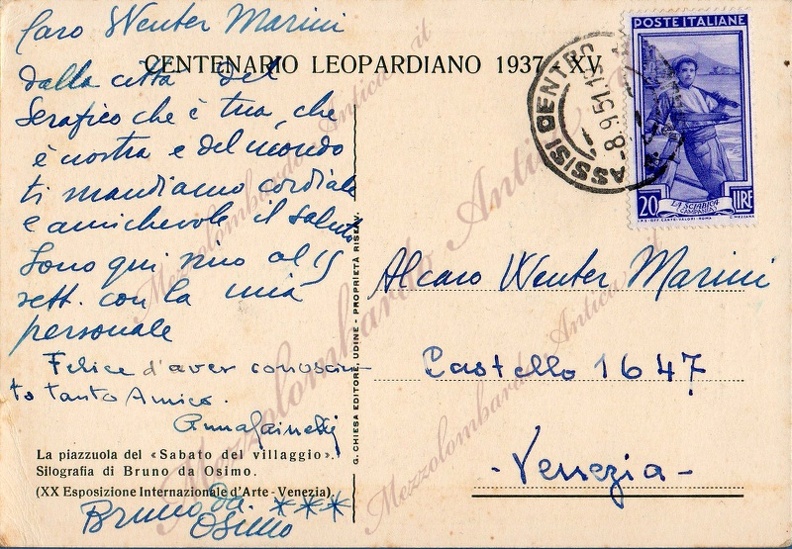 Caro Wenter Marini
CENTENARIO LEOPARDIANO 1937 - XV
dalla città del
Serafico che è tua, che
è nostra e del mondo
ti mandiamo cordiale
e amichevole il saluto
Sono qui sino al 15
sett. con la mia
personale
Felice d'aver conosciu-
to tanto Amico.
La piazzuola del «Sabato del villaggio».
Silografia di Bruno da Osimo.
(XX Esposizione Internazionale d'Arte - Venezia).
Bruno da
Osimo
G. CHIESA EDITORE, UDINE - PROPRIETÀ RISERV.
ASSISI CENTRO
-8.9.51.1
POSTE ITALIANE
LA SCIABICA
CAMPANIA
20 LIRE
Al caro Wenter Marini
Castello 1647
- Venezia -
Mezzolombardo Antica.it
Mezzolombardo Antica
Mezzolombardo Antica